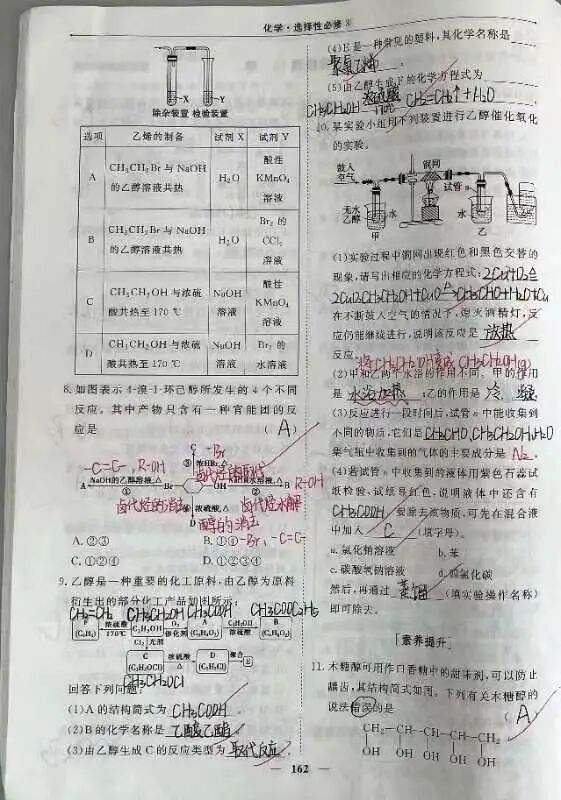 化学·选择性必修3
除杂装置 检验装置
选项 乙烯的制备 试剂 X 试剂 Y
A CH₃CH₂Br 与 NaOH 的乙醇溶液共热 H₂O 酸性 KMnO₄ 溶液
B CH₃CH₂Br 与 NaOH 的乙醇溶液共热 H₂O Br₂ 的 CCl₄ 溶液
C CH₃CH₂OH 与浓硫酸共热至 170 ℃ NaOH 溶液 酸性 KMnO₄ 溶液
D CH₃CH₂OH 与浓硫酸共热至 170 ℃ NaOH 溶液 Br₂ 的水溶液
8.如图表示 4-溴-1-环己醇所发生的 4 个不同
反应。其中产物只含有一种官能团的反
应是 ( A )
C -Br
③ 浓HBr,△
-C=C-, R-OH
A NaOH的乙醇溶液,△ ① Br OH NaOH水溶液,△ ② B R-OH
卤代烃的取代
卤代烃的消去 ④ 浓硫酸,△ 卤代烃水解
D 醇的消去
-Br, -C=C-
A. ②③ B. ①④
C. ①②④ D. ①②③④
9.乙醇是一种重要的化工原料,由乙醇为原料
衍生出的部分化工产品如图所示:
CH₂=CH₂ CH₃CH₂OH CH₃COOH CH₃COOC₂H₅
(C₂H₄) 浓硫酸 170℃ C₂H₅OH O₂ 催化剂 A (C₂H₄O₂) C₂H₅OH 浓硫酸 B (C₄H₈O₂)
Cl₂ 光照
C (C₂H₅OCl) 浓硫酸 △ D (C₂H₃Cl) 聚合 E
CH₃CH₂OCl
回答下列问题:
(1)A 的结构简式为 CH₃COOH
(2)B 的化学名称是 乙酸乙酯
(3)由乙醇生成 C 的反应类型为 取代反应
(4)E 是一种常见的塑料,其化学名称是
聚氯乙烯
(5)由乙醇生成 F 的化学方程式为
CH₃CH₂OH 浓硫酸 170℃ CH₂=CH₂↑+H₂O
10.某实验小组用下列装置进行乙醇催化氧化
的实验。
鼓入空气 铜网 试管 a
无水乙醇 水 水
甲 乙
(1)实验过程中铜网出现红色和黑色交替的
现象,请写出相应的化学方程式: 2Cu+O₂△
2CuO, CH₃CH₂OH+CuO △ CH₃CHO+H₂O+Cu
在不断鼓入空气的情况下,熄灭酒精灯,反
应仍能继续进行,说明该反应是 放热
反应。
将CH₃CH₂OH变成CH₃CH₂OH(g)
(2)甲和乙两个水浴的作用不同。甲的作用
是 水浴加热 ;乙的作用是 冷凝
(3)反应进行一段时间后,试管 a 中能收集到
不同的物质,它们是 CH₃CHO,CH₃CH₂OH,H₂O
集气瓶中收集到的气体的主要成分是 N₂
(4)若试管 a 中收集到的液体用紫色石蕊试
纸检验,试纸显红色,说明液体中还含有
CH₃COOH 要除去该物质,可先在混合液
中加入 C (填字母)。
a. 氯化钠溶液 b. 苯
c. 碳酸氢钠溶液 d. 四氯化碳
然后,再通过 蒸馏 (填实验操作名称)
即可除去。
「素养提升」
11.木糖醇可用作口香糖中的甜味剂,可以防止
龋齿,其结构简式如图。下列有关木糖醇的
说法错误的是 ( A )
CH₂—CH—CH—CH—CH₂
OH OH OH OH OH
162